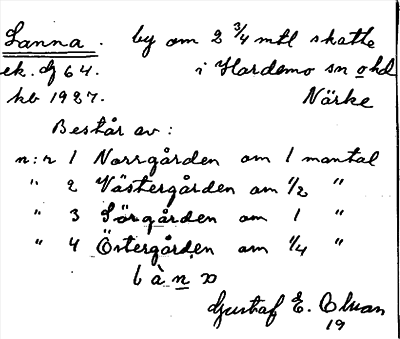 Lanna. by om 2 3/4 mtl skatte
ek. bl 64. i Hardemo sn o hd
kb 1927. Närke
Består av:
n:r 1 Norrgården om 1 mantal
" 2 Västergården om 1/2 "
" 3 Sörgården om 1 "
" 4 Östergården om 1/4 "
Gustaf E.
19